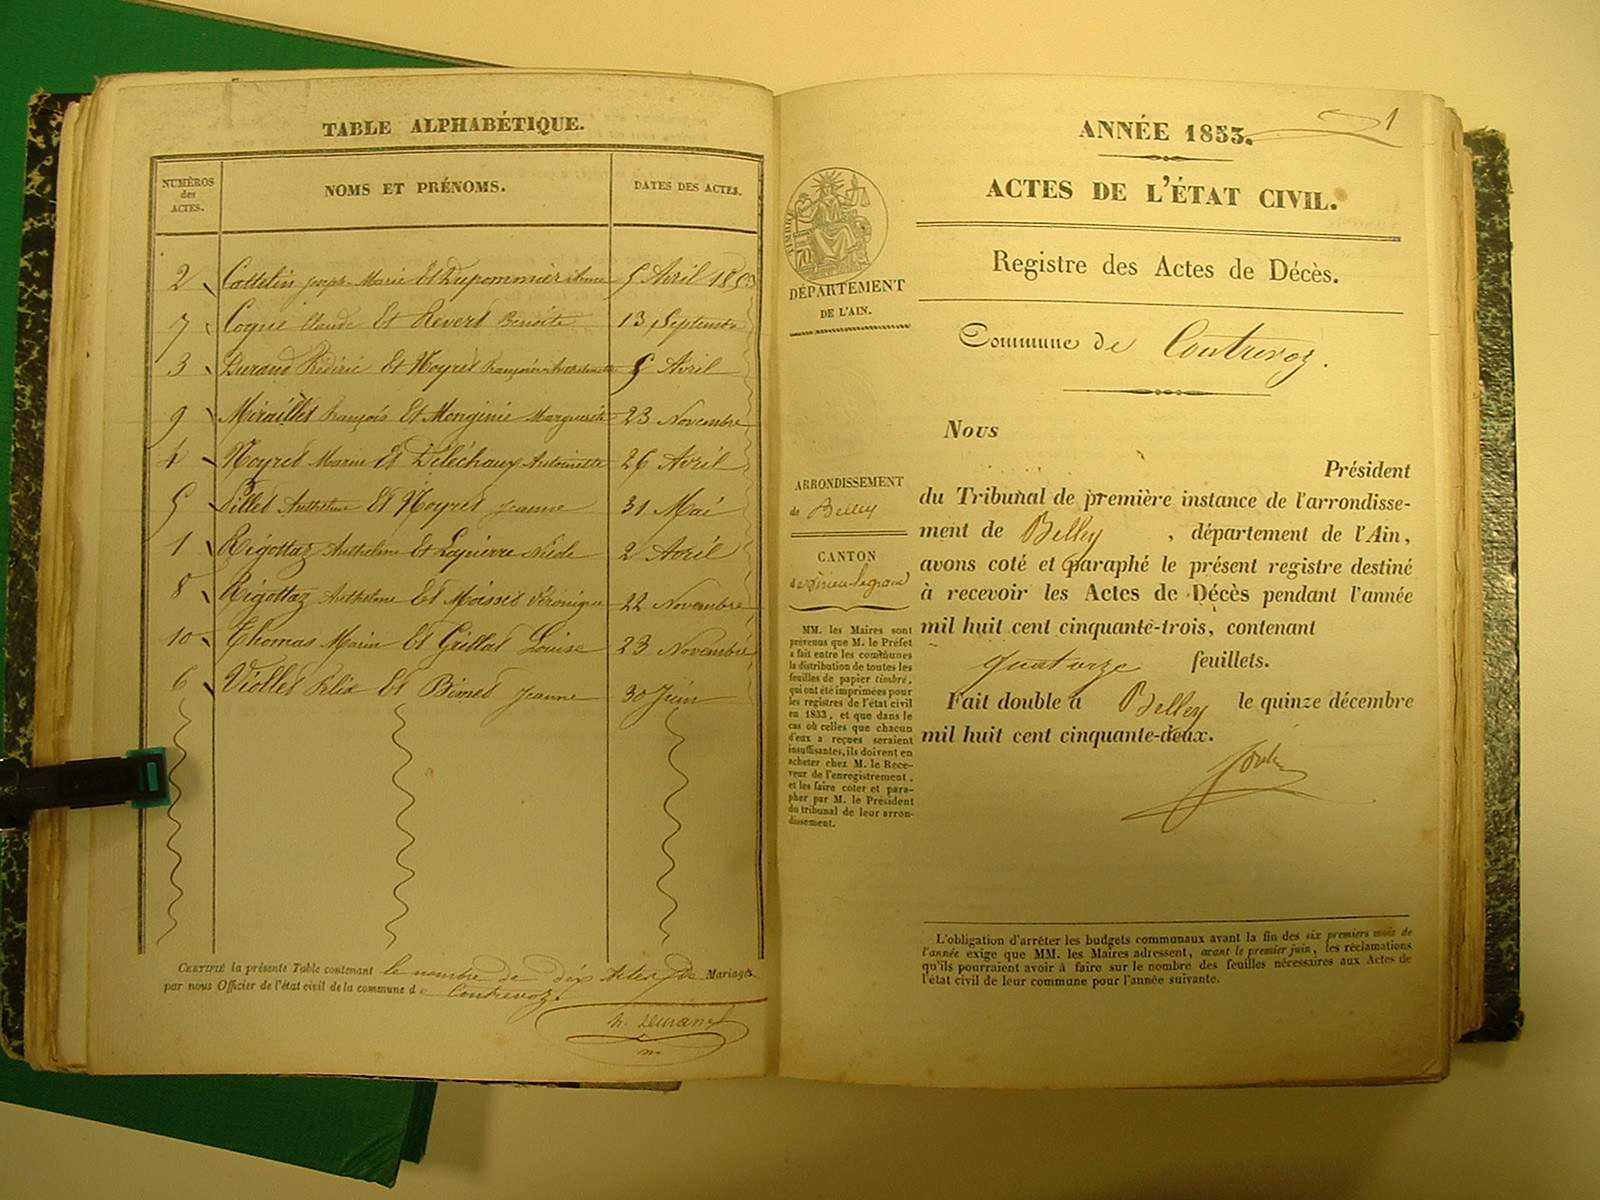 TABLE ALPHABÉTIQUE.
NUMÉROS des ACTES.
NOMS ET PRÉNOMS.
DATES DES ACTES.
2 Cattelin Joseph-Marie Et Dupommier 5 Avril 1853
7 Cogne Claude Et Revert Benoite 13 Septembre
3 Durand Et Noyret Françoise Anthelmette 5 Avril
9 Miraillet François Et Monginie Marguerite 23 Novembre
4 Noyret Marin Et Déléchaux Antoinette 26 Avril
5 Pillet Anthelme Et Noyret Jeanne 31 Mai
1 Rigottaz Anthelme Et Lapierre 2 Avril
8 Rigottaz Anthelme Et Maisset Véronique 22 Novembre
10 Thomas Marin Et Grillat Louise 23 Novembre
6 Viollet Félix Et Binet Jeanne 30 Juin
CERTIFIÉ la présente Table contenant le nombre de dix Actes de Mariages
par nous Officier de l'état civil de la commune de Contrevoz.
Durand
1
ANNÉE 1853.
ACTES DE L'ÉTAT CIVIL.
Registre des Actes de Décès.
TIMBRE
DÉPARTEMENT
DE L'AIN.
Commune de Contrevoz.
ARRONDISSEMENT
de Belley
CANTON
de Virieu-le-grand
MM. les Maires sont
prévenus que M. le Préfet
a fait entre les communes
la distribution de toutes les
feuilles de papier timbré,
qui ont été imprimées pour
les registres de l'état civil
en 1853, et que dans le
cas où celles que chacun
d'eux a reçues seraient
insuffisantes, ils doivent en
acheter chez M. le Rece-
veur de l'enregistrement,
et les faire coter et para-
pher par M. le Président
du tribunal de leur arron-
dissement.
Nous
Président
du Tribunal de première instance de l'arrondisse-
ment de Belley, département de l'Ain,
avons coté et paraphé le présent registre destiné
à recevoir les Actes de Décès pendant l'année
mil huit cent cinquante-trois, contenant
quatorze feuillets.
Fait double à Belley le quinze décembre
mil huit cent cinquante-deux.
L'obligation d'arrêter les budgets communaux avant la fin des six premiers mois de
l'année exige que MM. les Maires adressent, avant le premier juin, les réclamations
qu'ils pourraient avoir à faire sur le nombre des feuilles nécessaires aux Actes de
l'état civil de leur commune pour l'année suivante.